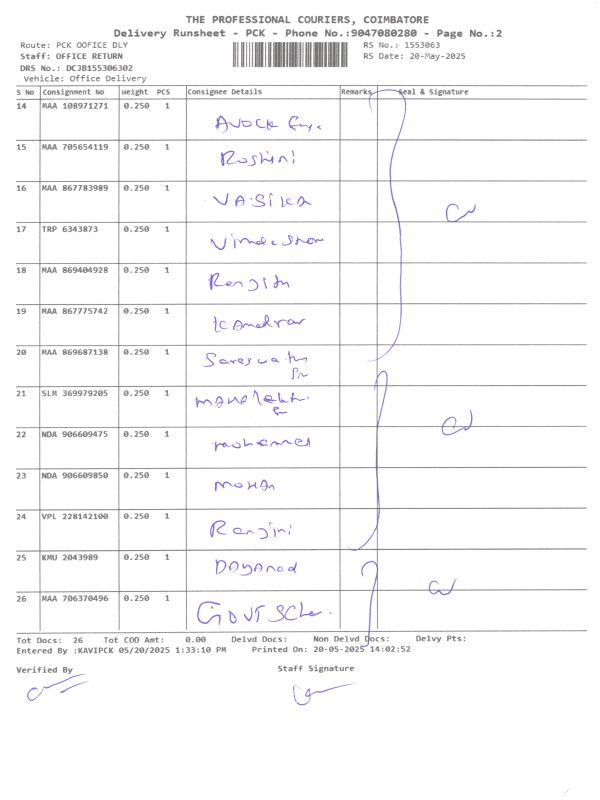 THE PROFESSIONAL COURIERS, COIMBATORE
Delivery Runsheet - PCK - Phone No.:9047080280 - Page No.:2
Route: PCK OOFICE DLY RS No.: 1553063
Staff: OFFICE RETURN RS Date: 20-May-2025
DRS No.: DCJB155306302
Vehicle: Office Delivery
S No Consignment No Weight PCS Consignee Details Remarks Seal & Signature
14 MAA 108971271 0.250 1
15 MAA 705654119 0.250 1
Roshini
16 MAA 867783989 0.250 1
VASIKA
17 TRP 6343873 0.250 1
18 MAA 869404928 0.250 1
Renjith
19 MAA 867775742 0.250 1
20 MAA 869687138 0.250 1
21 SLM 369979205 0.250 1
22 NDA 906609475 0.250 1
mohammed
23 NDA 906609850 0.250 1
MOHAN
24 VPL 228142100 0.250 1
Renjini
25 KMU 2043989 0.250 1
26 MAA 706370496 0.250 1
GOVT
Tot Docs: 26 Tot COD Amt: 0.00 Delvd Docs: Non Delvd Docs: Delvy Pts:
Entered By :KAVIPCK 05/20/2025 1:33:10 PM Printed On: 20-05-2025 14:02:52
Verified By Staff Signature